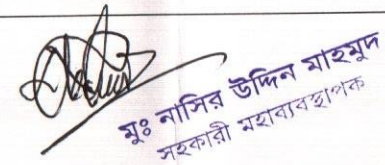 মুঃ নাসির উদ্দিন মাহমুদ
সহকারী মহাব্যবস্থাপক